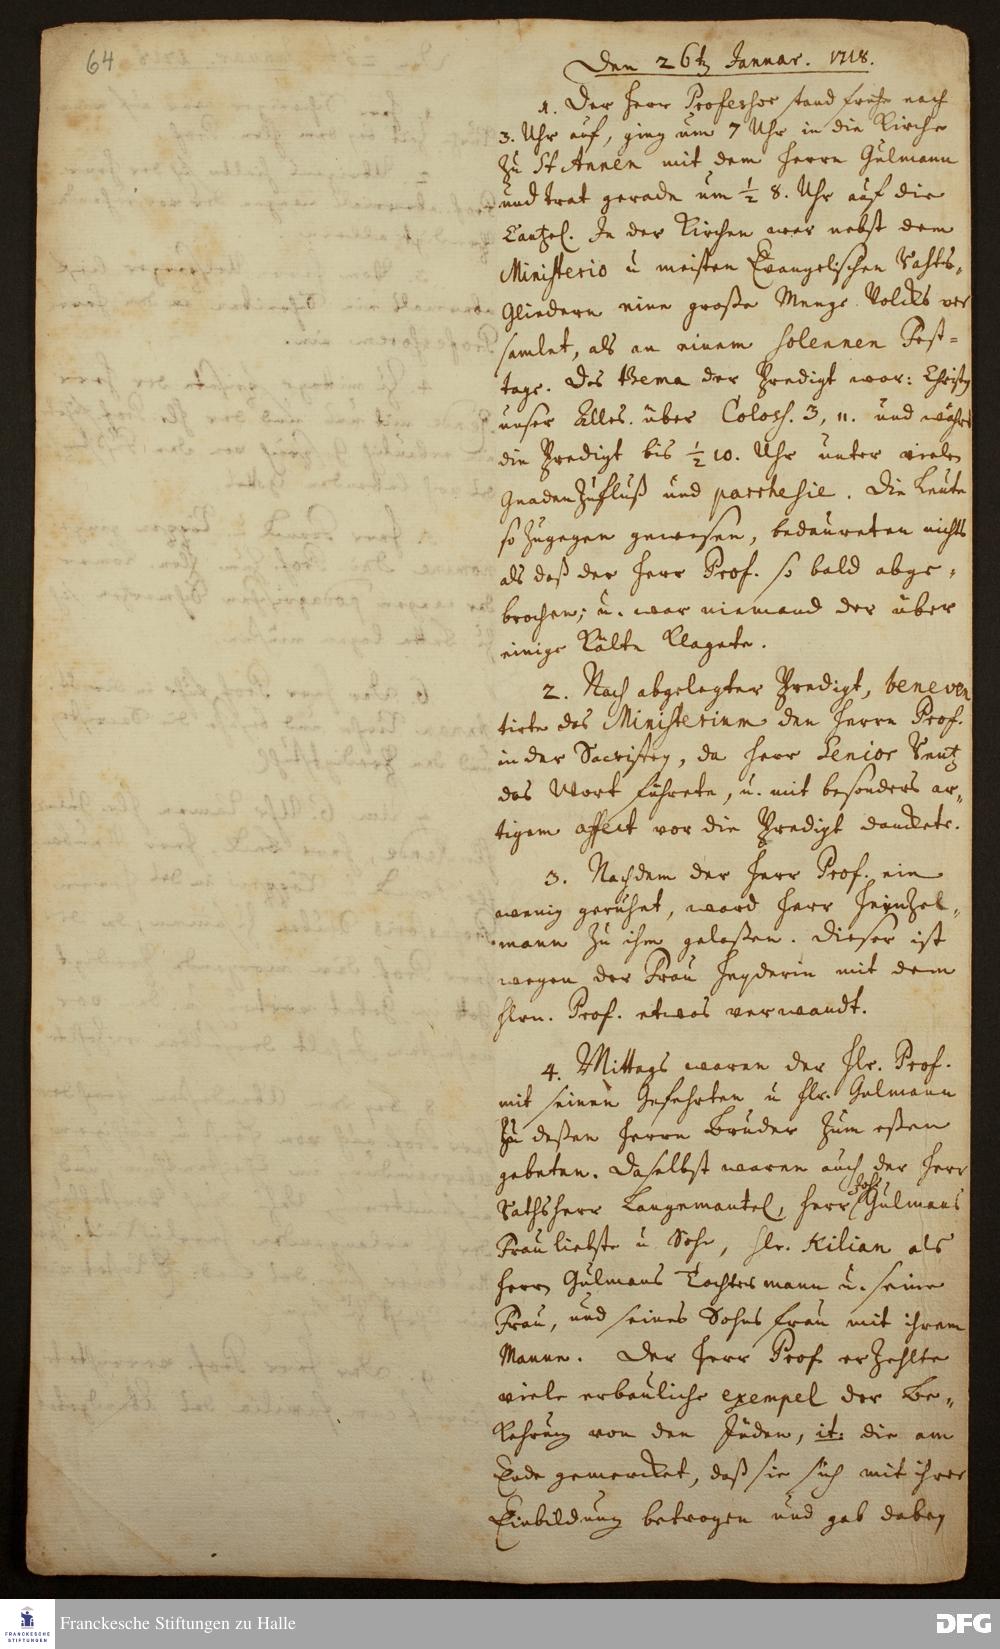 64
Den 26t. Januar. 1718.
1. Der Herr Professor stand frühe nach
3. Uhr auf, ging um 7 Uhr in die Kirche
zu St Annen mit dem Herrn Gulmann
und trat gerade um ½ 8. Uhr auf die
Cantzel. In der Kirchen war nebst dem
Ministerio u meisten Evangelischen Rahts-
Gliedern eine große Menge Volcks ver
samlet, als an einem solennen Fest-
tage. Das thema der Predigt war: Christus
unser Alles. über Coloss. 3, 11. und währe
die Predigt bis ½ 10. Uhr unter vielen
Gnaden Zufluß und parrhesie. Die Leute
so zugegen gewesen, bedaureten nichts
als daß der Herr Prof. so bald abge-
brochen; u. war niemand der über
einige Kälte klagete.
2. Nach abgelegter Predigt, beneven
tirte das Ministerium den Herrn Prof.
in der Sacristey, da Herr Senior
das Wort führete, u. mit besonders ar-
tigem affect vor die Predigt danckete.
3. Nachdem der Herr Prof. ein
wenig geruhet, ward Herr Heinzel-
mann zu ihm gelaßen. Dieser ist
wegen der Frau Heyderin mit dem
Hrn. Prof. etwas verwandt.
4. Mittags waren der Hr. Prof.
mit seinen Gefehrten u Hr. Gulmann
zu deßen Herrn Bruder zum eßen
gebeten. Daselbst waren auch der Herr
Rathsherr Langemantel, Herr Joh. Gulmans
Frau liebste u Sohn, Hr. Kilian als
Herrn Gulmans Tochtermann u. seine
Frau, und seines Sohns Frau mit ihrem
Manne. Der Herr Prof. erzehlte
viele erbauliche exempel der Be-
kehrung von den Jüden, it: die am
Ende gemercket, daß sie sich mit ihrer
Einbildung betrogen und gab dabey
Franckesche Stiftungen zu Halle
FRANCKESCHE
STIFTUNGEN
DFG